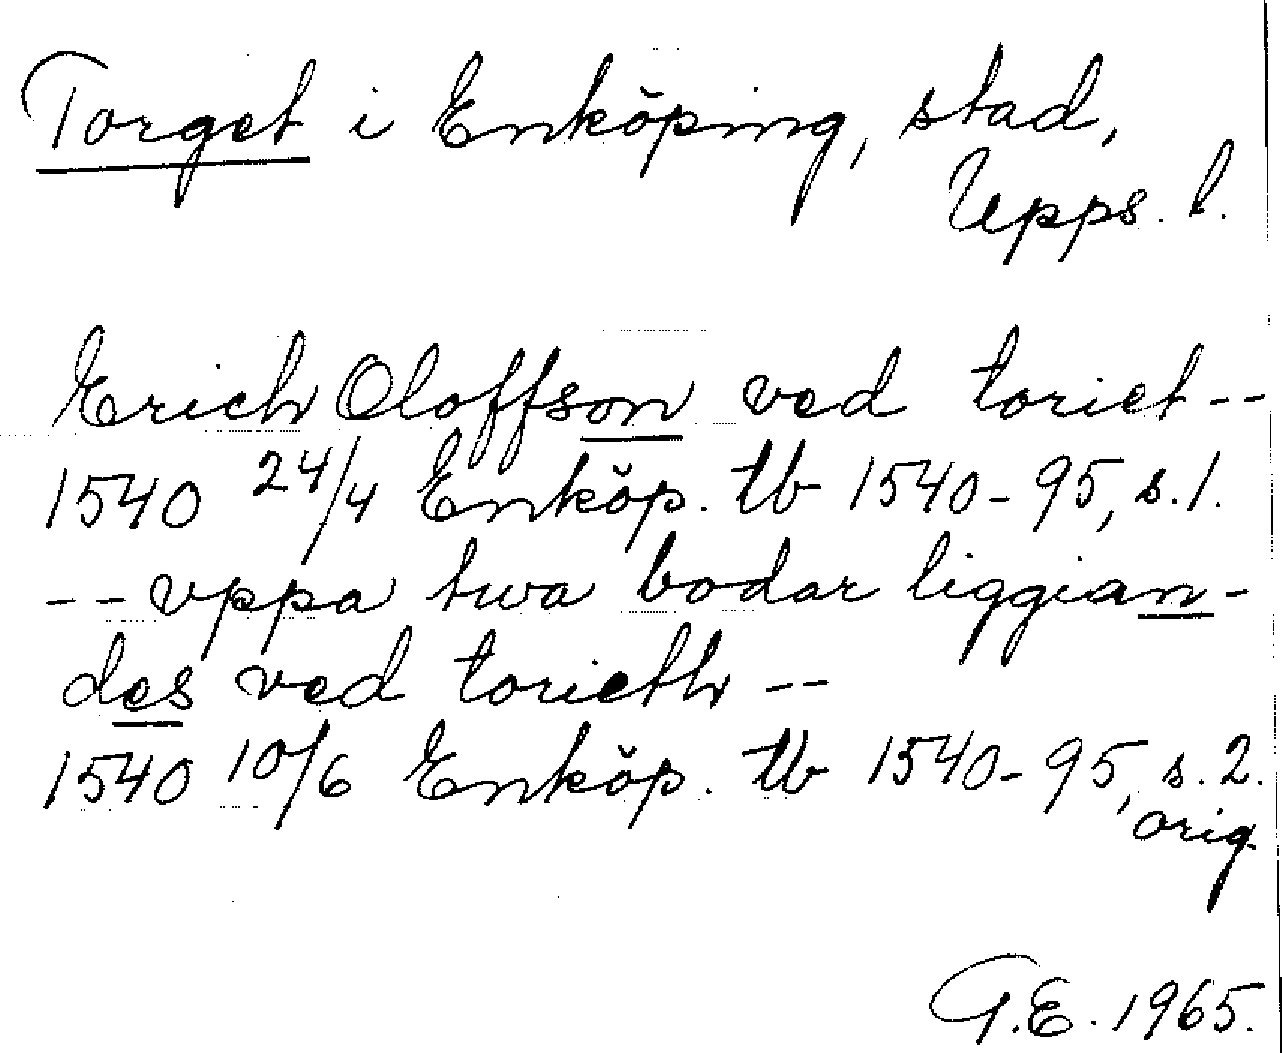 Torget i Enköping, stad,
Upps. l.
Erich Oloffson ved toriet --
1540 24/4 Enköp. tb 1540-95, s. 1.
-- vppa twa bodar liggian-
des ved torieth --
1540 10/6 Enköp. tb 1540-95, s. 2.
orig.
G.E. 1965.